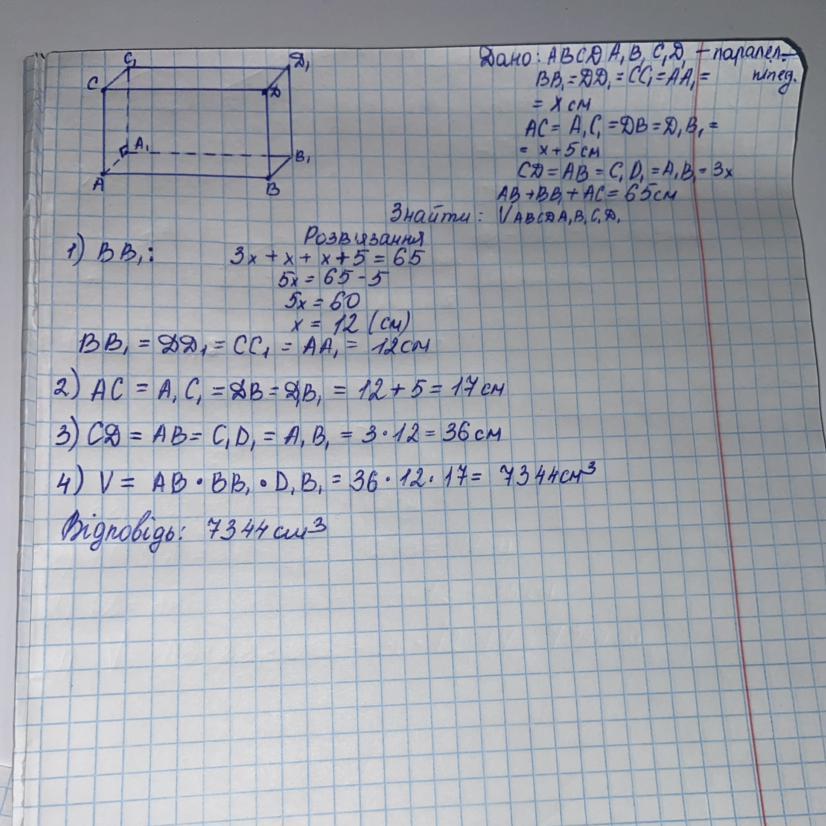 C₁ D₁
C D
A₁ B₁
A B
Дано: ABCDA₁B₁C₁D₁ – паралел.-
BB₁ = DD₁ = CC₁ = AA₁ = піпед.
= x см
AC = A₁C₁ = DB = D₁B₁ =
= x + 5 см
CD = AB = C₁D₁ = A₁B₁ = 3x
AB + BB₁ + AC = 65 см
Знайти: V ABCDA₁B₁C₁D₁
Розв'язання
1) BB₁: 3x + x + x + 5 = 65
5x = 65 - 5
5x = 60
x = 12 (см)
BB₁ = DD₁ = CC₁ = AA₁ = 12 см
2) AC = A₁C₁ = DB = D₁B₁ = 12 + 5 = 17 см
3) CD = AB = C₁D₁ = A₁B₁ = 3 · 12 = 36 см
4) V = AB · BB₁ · D₁B₁ = 36 · 12 · 17 = 7344 см³
Відповідь: 7344 см³